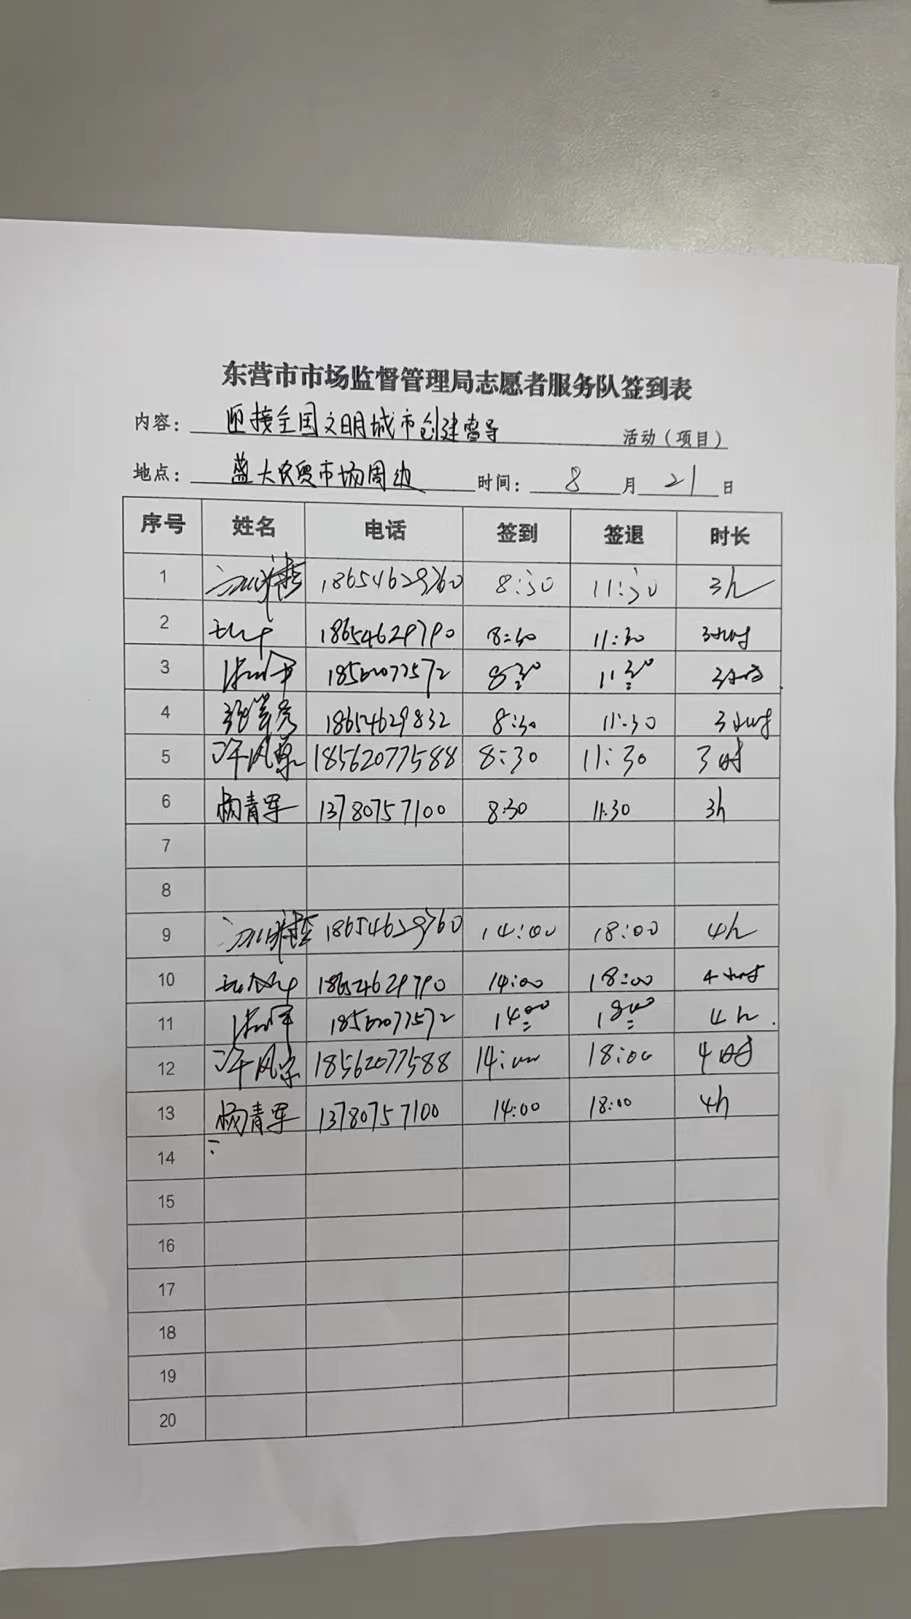 东营市市场监督管理局志愿者服务队签到表
内容： 迎接全国文明城市创建督导 活动（项目）
地点： 蓝大农贸市场周边 时间： 8 月 21 日
序号 姓名 电话 签到 签退 时长
1 18654629760 8:30 11:30 3h
2 18654629790 8:30 11:30 3小时
3 18562077572 8:30 11:30 3小时
4 18654629832 8:30 11:30 3小时
5 18562077588 8:30 11:30 3时
6 杨青军 13780757100 8:30 11:30 3h
7
8
9 18654629760 14:00 18:00 4h
10 18654629790 14:00 18:00 4小时
11 18562077572 14:00 18:00 4h.
12 18562077588 14:00 18:00 4时
13 杨青军 13780757100 14:00 18:00 4h
14
15
16
17
18
19
20